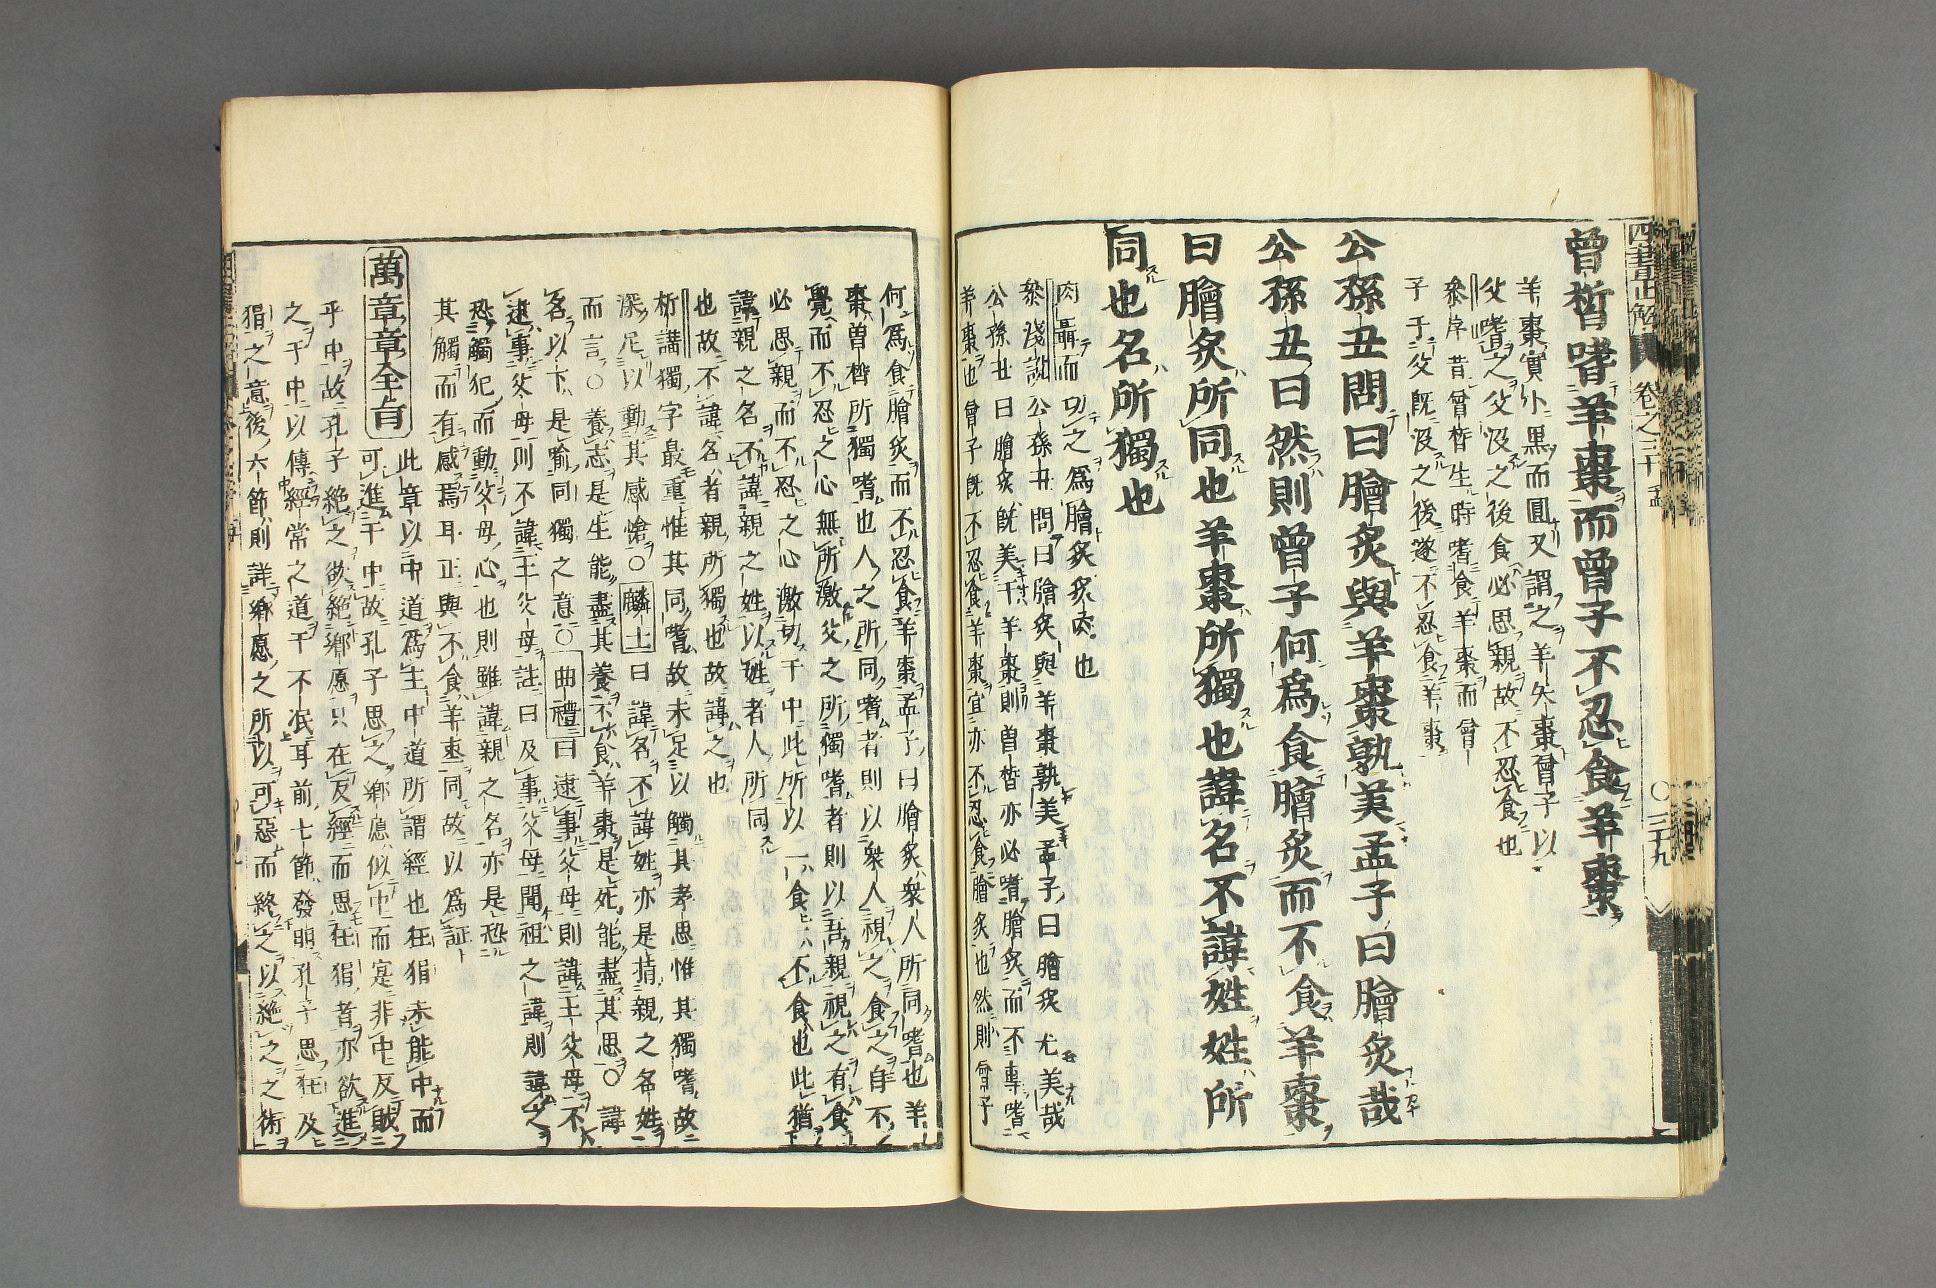 四書正解 卷之三十 孟 〇三十九
曾晳嗜羊棗而曾子不忍食羊棗
羊棗實小黑而圓又謂之羊矢棗曾子以
父嗜之父没之後食必思親故不忍食也
參序昔曾晳生時嗜食羊棗而曾
子于父既没之後遂不忍食羊棗
公孫丑問曰膾炙與羊棗孰美孟子曰膾炙哉
公孫丑曰然則曾子何爲食膾炙而不食羊棗
曰膾炙所同也羊棗所獨也諱名不諱姓姓所
同也名所獨也
肉聶而切之爲膾炙炙肉也
參淺説公孫丑問曰膾炙與羊棗孰美孟子曰膾炙尤美哉
公孫丑曰膾炙既美于羊棗則曾晳亦必嗜膾炙而不專嗜
羊棗也曾子既不忍食羊棗宜亦不忍食膾炙也然則曾子
何爲食膾炙而不忍食羊棗孟子曰膾炙衆人所同嗜也羊
棗曾晳所獨嗜也人之所同嗜者則以衆人視之食之自不
覺而不忍之心無所激父之所獨嗜者則以吾親視之有食
必思親而不忍之心激切于中此所以一食一不食也此猶
諱親之名不諱親之姓以姓者人所同
也故不諱名者親所獨也故諱之也
析講獨字最重惟其同嗜故未足以觸其孝思惟其獨嗜故
深足以動其感愴〇麟士曰諱名不諱姓亦是指親之名姓
而言〇養志是生能盡其養不食羊棗是死能盡其思〇諱
名以下是喻同獨之意〇曲禮曰逮事父母則諱王父母不
逮事父母則不諱王父母註曰及事父母聞祖之諱則諱父
恐觸犯而動父母心也則雖諱親之名亦是恐
其觸而有感焉耳正與不食羊棗同故以爲証
萬章章全旨
此章以中道爲主中道所謂經也狂狷未能中而
可進于中故孔子思之鄉愿似中而寔非中反賊
乎中故孔子絶之欲絶鄉愿只在反經而思狂狷者亦欲進
之于中以傳經常之道于不泯耳前七節發明孔子思狂及
狷之意後六節則詳鄉愿之所以可惡而終之以絶之之術